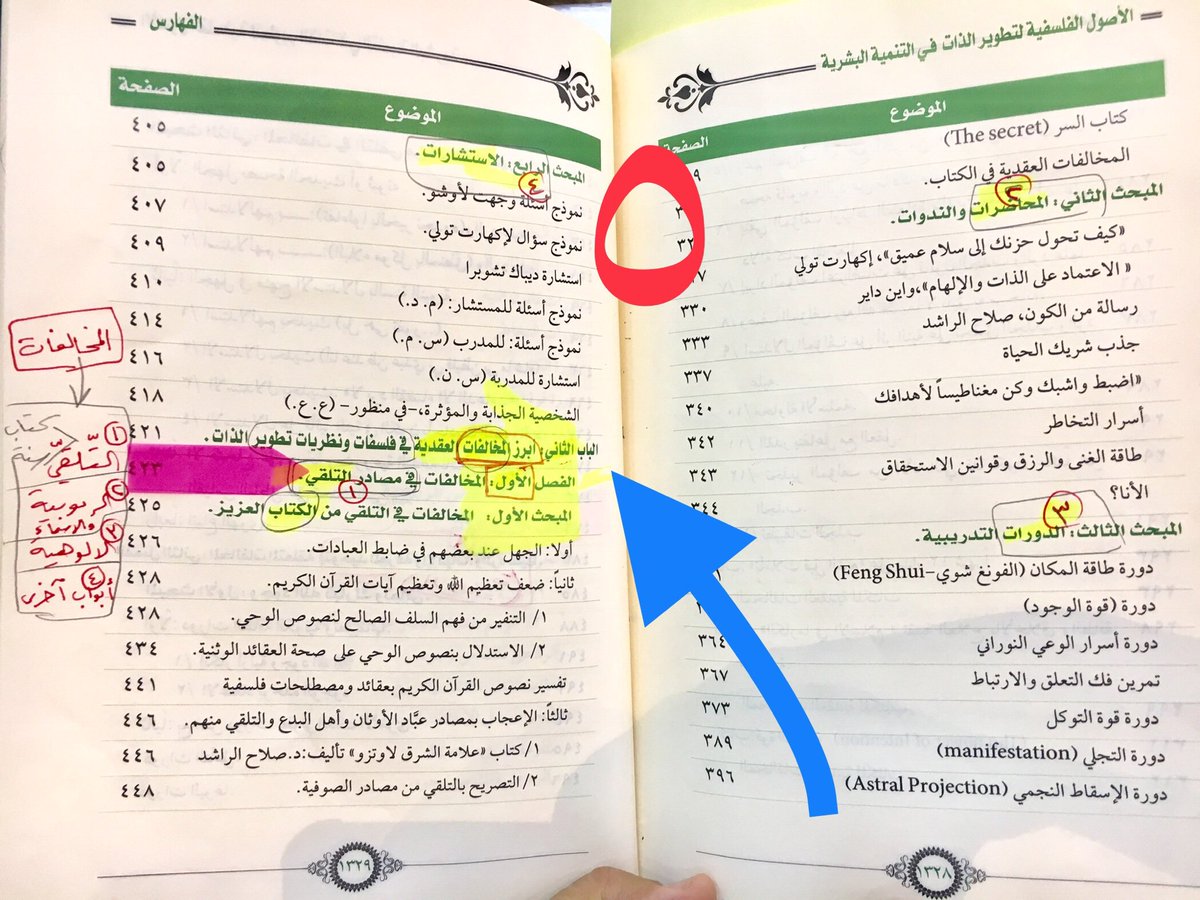 الأصول الفلسفية لتطوير الذات في التنمية البشرية
الموضوع الصفحة
كتاب السر (The secret)
المخالفات العقدية في الكتاب. ٩
المبحث الثاني: المحاضرات والندوات.
٢
«كيف تحول حزنك إلى سلام عميق»، إكهارت تولي
« الاعتماد على الذات والإلهام»،واين داير
رسالة من الكون، صلاح الراشد ٣٣٠
جذب شريك الحياة ٣٣٣
«اضبط واشبك وكن مغناطيساً لأهدافك ٣٣٧
أسرار التخاطر ٣٤٠
طاقة الغنى والرزق وقوانين الاستحقاق ٣٤٢
الأنا؟ ٣٤٣
المبحث الثالث: الدورات التدريبية. ٣٤٤
٣
دورة طاقة المكان (الفونغ شوي–Feng Shui)
دورة (قوة الوجود)
دورة أسرار الوعي النوراني ٣٦٤
تمرين فك التعلق والارتباط ٣٦٧
دورة قوة التوكل ٣٧٣
دورة التجلي (manifestation) ٣٨٩
دورة الإسقاط النجمي (Astral Projection) ٣٩٦
١٣٢٨
الفهارس
الموضوع الصفحة
المبحث الرابع: الاستشارات. ٤٠٥
٤
نموذج أسئلة وجهت لأوشو. ٤٠٥
نموذج سؤال لإكهارت تولي. ٤٠٧
استشارة ديباك تشوبرا ٤٠٩
نموذج أسئلة للمستشار: (م. د.) ٤١٠
نموذج أسئلة: للمدرب (س. م.) ٤١٤
استشارة للمدربة (س. ن.) ٤١٦
الشخصية الجذابة والمؤثرة،–في منظور– (ع.ع.) ٤١٨
الباب الثاني: أبرز المخالفات العقدية في فلسفات ونظريات تطوير الذات. ٤٢١
الفصل الأول: المخالفات في مصادر التلقي. ٤٢٣
١
المبحث الأول: المخالفات في التلقي من الكتاب العزيز. ٤٢٥
أولا: الجهل عند بعضهم في ضابط العبادات. ٤٢٦
ثانياً: ضعف تعظيم الله وتعظيم آيات القرآن الكريم. ٤٢٨
١/ التنفير من فهم السلف الصالح لنصوص الوحي. ٤٢٨
٢/ الاستدلال بنصوص الوحي على صحة العقائد الوثنية. ٤٣٤
تفسير نصوص القرآن الكريم بعقائد ومصطلحات فلسفية ٤٤١
ثالثاً: الإعجاب بمصادر عبَّاد الأوثان وأهل البدع والتلقي منهم. ٤٤٦
١/ كتاب «علامة الشرق لاوتزو» تأليف:د.صلاح الراشد ٤٤٦
٢/ التصريح بالتلقي من مصادر الصوفية. ٤٤٨
١٣٢٩
المخالفات
١ التلقي
كتاب
٢ الربوبية
والأسماء
٣ الالوهية
٤ أبواب آخرى